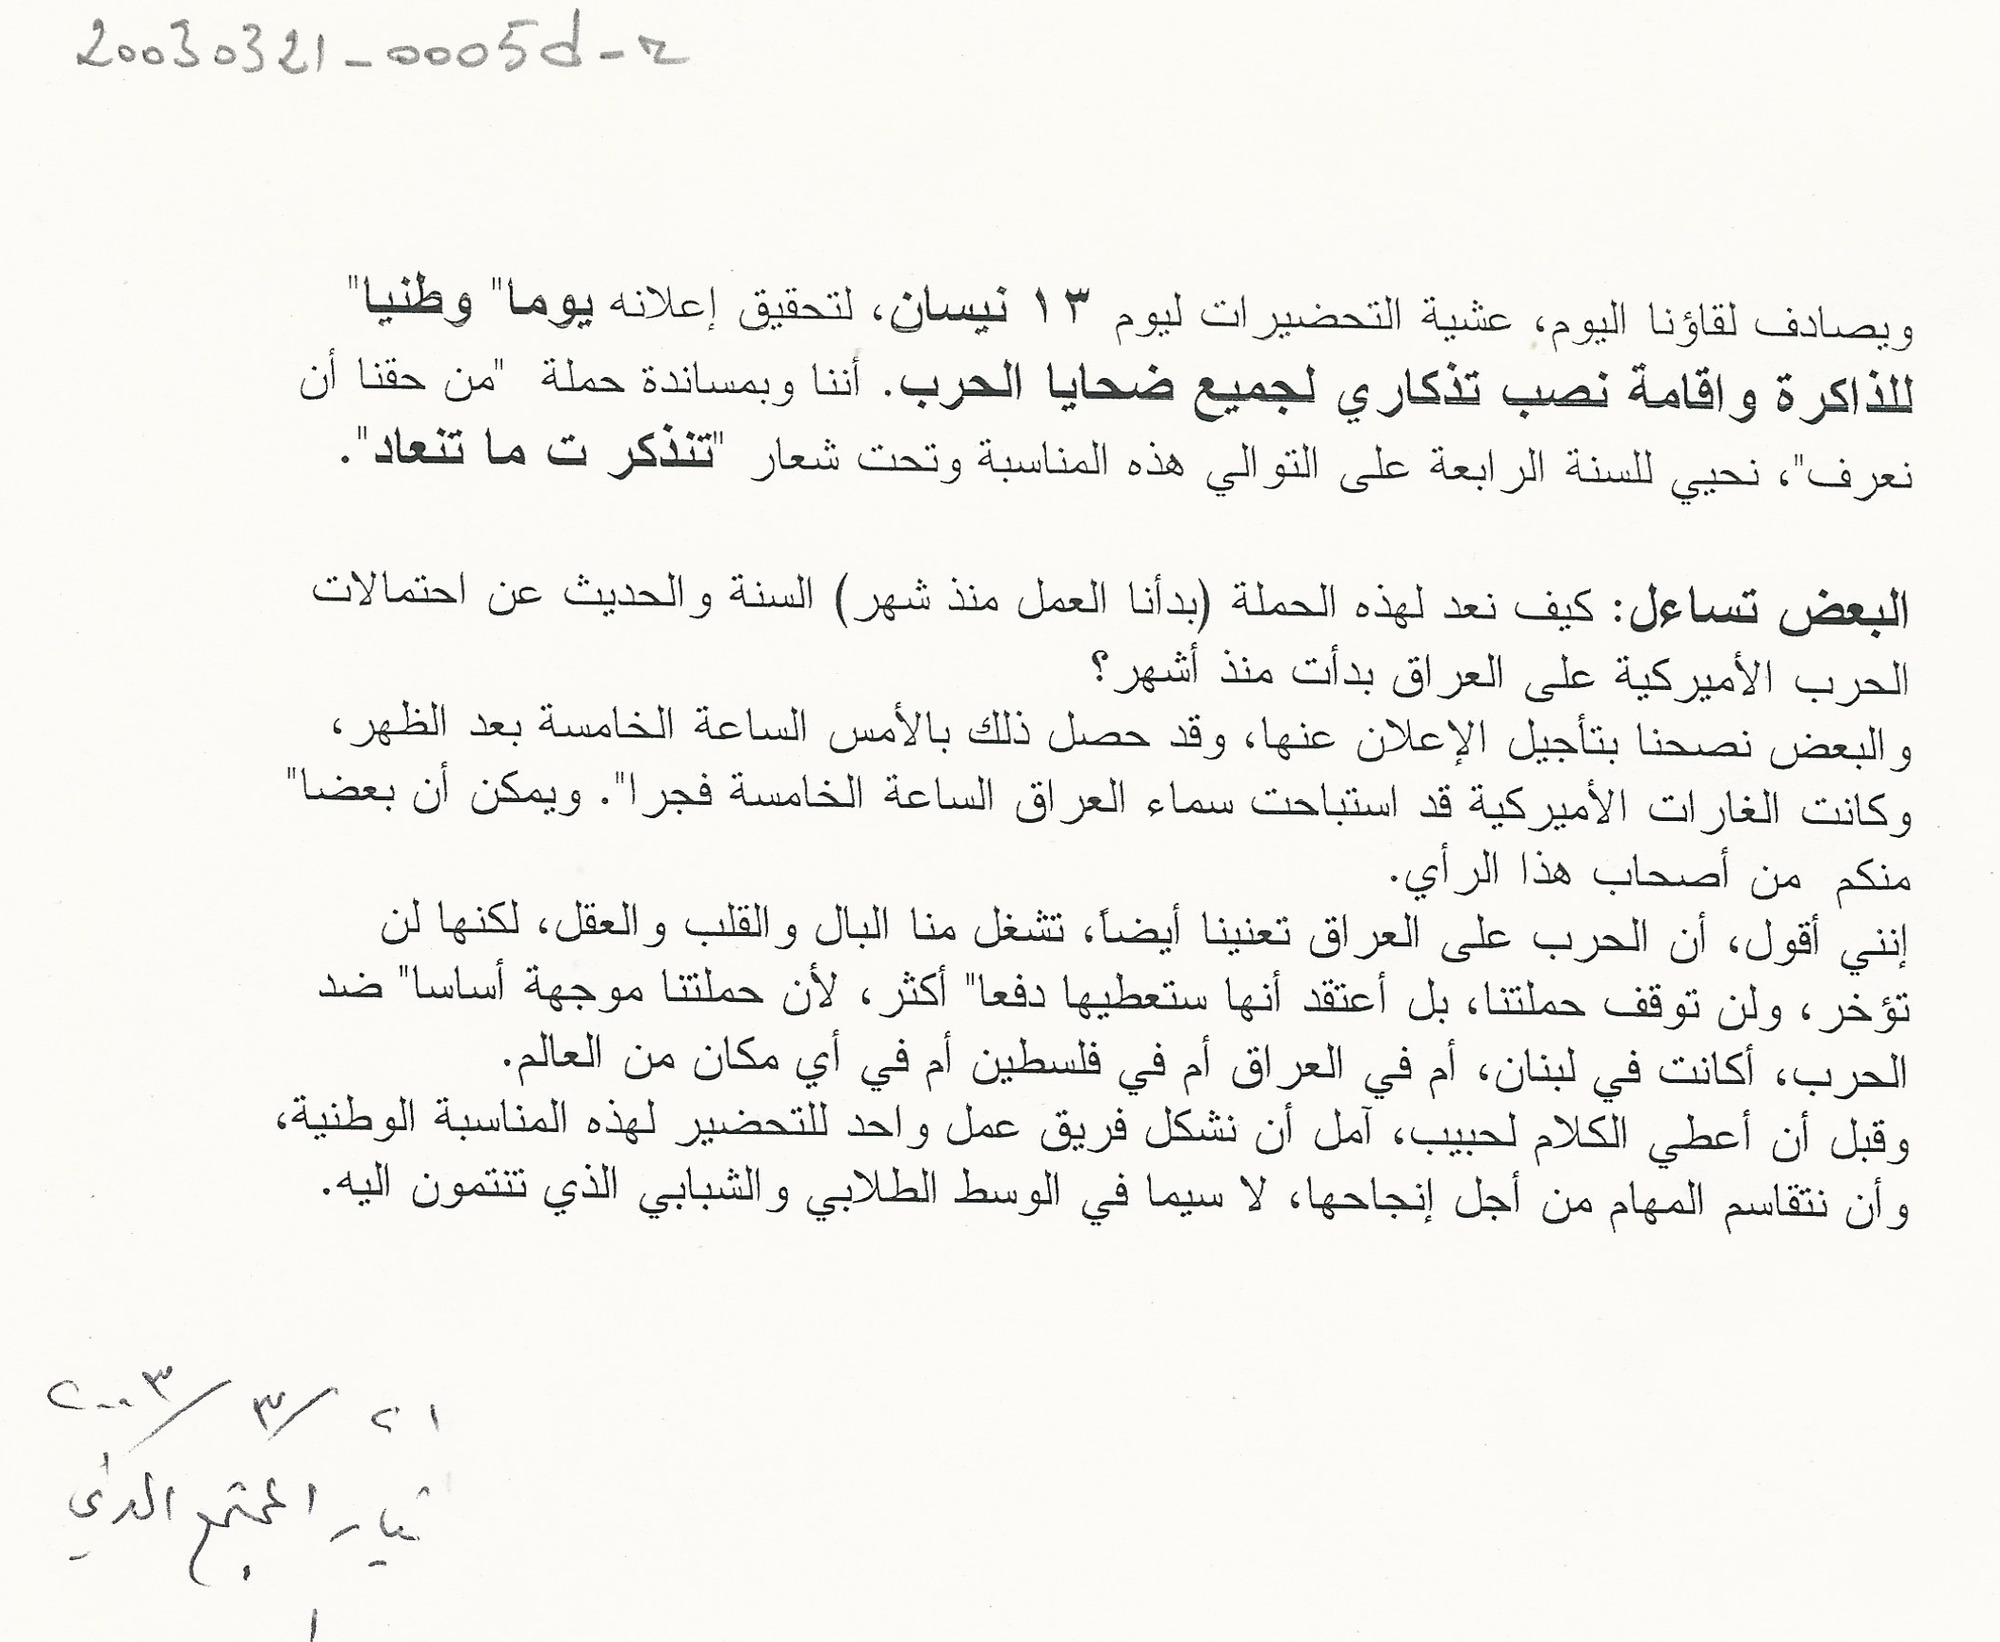 20030321-0005d-r
ويصادف لقاؤنا اليوم، عشية التحضيرات ليوم ١٣ نيسان، لتحقيق إعلانه يوما" وطنيا"
للذاكرة واقامة نصب تذكاري لجميع ضحايا الحرب. أننا وبمساندة حملة "من حقنا أن
نعرف"، نحيي للسنة الرابعة على التوالي هذه المناسبة وتحت شعار "تنذكر ت ما تنعاد".
البعض تساءل: كيف نعد لهذه الحملة (بدأنا العمل منذ شهر) السنة والحديث عن احتمالات
الحرب الأميركية على العراق بدأت منذ أشهر؟
والبعض نصحنا بتأجيل الإعلان عنها، وقد حصل ذلك بالأمس الساعة الخامسة بعد الظهر،
وكانت الغارات الأميركية قد استباحت سماء العراق الساعة الخامسة فجرا". ويمكن أن بعضا"
منكم من أصحاب هذا الرأي.
إنني أقول، أن الحرب على العراق تعنينا أيضاً، تشغل منا البال والقلب والعقل، لكنها لن
تؤخر، ولن توقف حملتنا، بل أعتقد أنها ستعطيها دفعا" أكثر، لأن حملتنا موجهة أساسا" ضد
الحرب، أكانت في لبنان، أم في العراق أم في فلسطين أم في أي مكان من العالم.
وقبل أن أعطي الكلام لحبيب، آمل أن نشكل فريق عمل واحد للتحضير لهذه المناسبة الوطنية،
وأن نتقاسم المهام من أجل إنجاحها، لا سيما في الوسط الطلابي والشبابي الذي تنتمون اليه.
٢١ /٣ /٢٠٠٣
تيار المجتمع